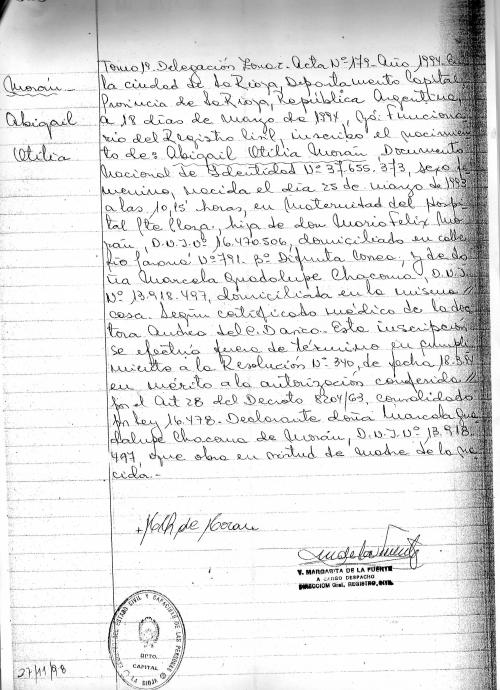 Tomo 19. Delegación Zonas. Acta Nº 179. Año 1994. En
la ciudad de La Rioja, Departamento Capital,
Provincia de La Rioja, República Argentina,
a 18 días de marzo de 1994, Yo: Funciona
rio del Registro Civil, inscribo el nacimien
to de: Abigail Otilia Morán, Documento
Nacional de Identidad Nº 37.655.373, sexo fe
menino, nacida el día 25 de marzo de 1993
a las 10,15 horas, en Maternidad del Hospi
tal Pte Plaza, hija de don Mario Felix Mo
rán, D.N.I. Nº 16.470.506, domiciliado en calle
Río Paraná Nº 791. Bº Difunta Correa, y de do
ña Marcela Guadalupe Chacoma, D.N.I.
Nº 13.918.497, domiciliada en la misma //
casa. Según certificado médico de la doc
tora Andrea del C. Danco. Esta inscripción
se efectúa fuera de término en cumpli
miento a la Resolución Nº 340, de fecha 18.3.94
en mérito a la autorización conferida //
por el Art 28 del Decreto 8204/63, convalidado
por Ley 16.478. Declarante doña Marcela Gua
dalupe Chacoma de Morán, D.N.I. Nº 13.918.
497, que obra en virtud de madre de la na
cida.-
Morán
Abigail
Otilia
de Moran
V. MARGARITA DE LA FUENTE
A CARGO DESPACHO
DIRECCION Gral. REGISTRO CIVIL
ESTADO CIVIL Y CAPACIDAD DE LAS PERSONAS
DPTO.
CAPITAL
LA RIOJA
27/11/98